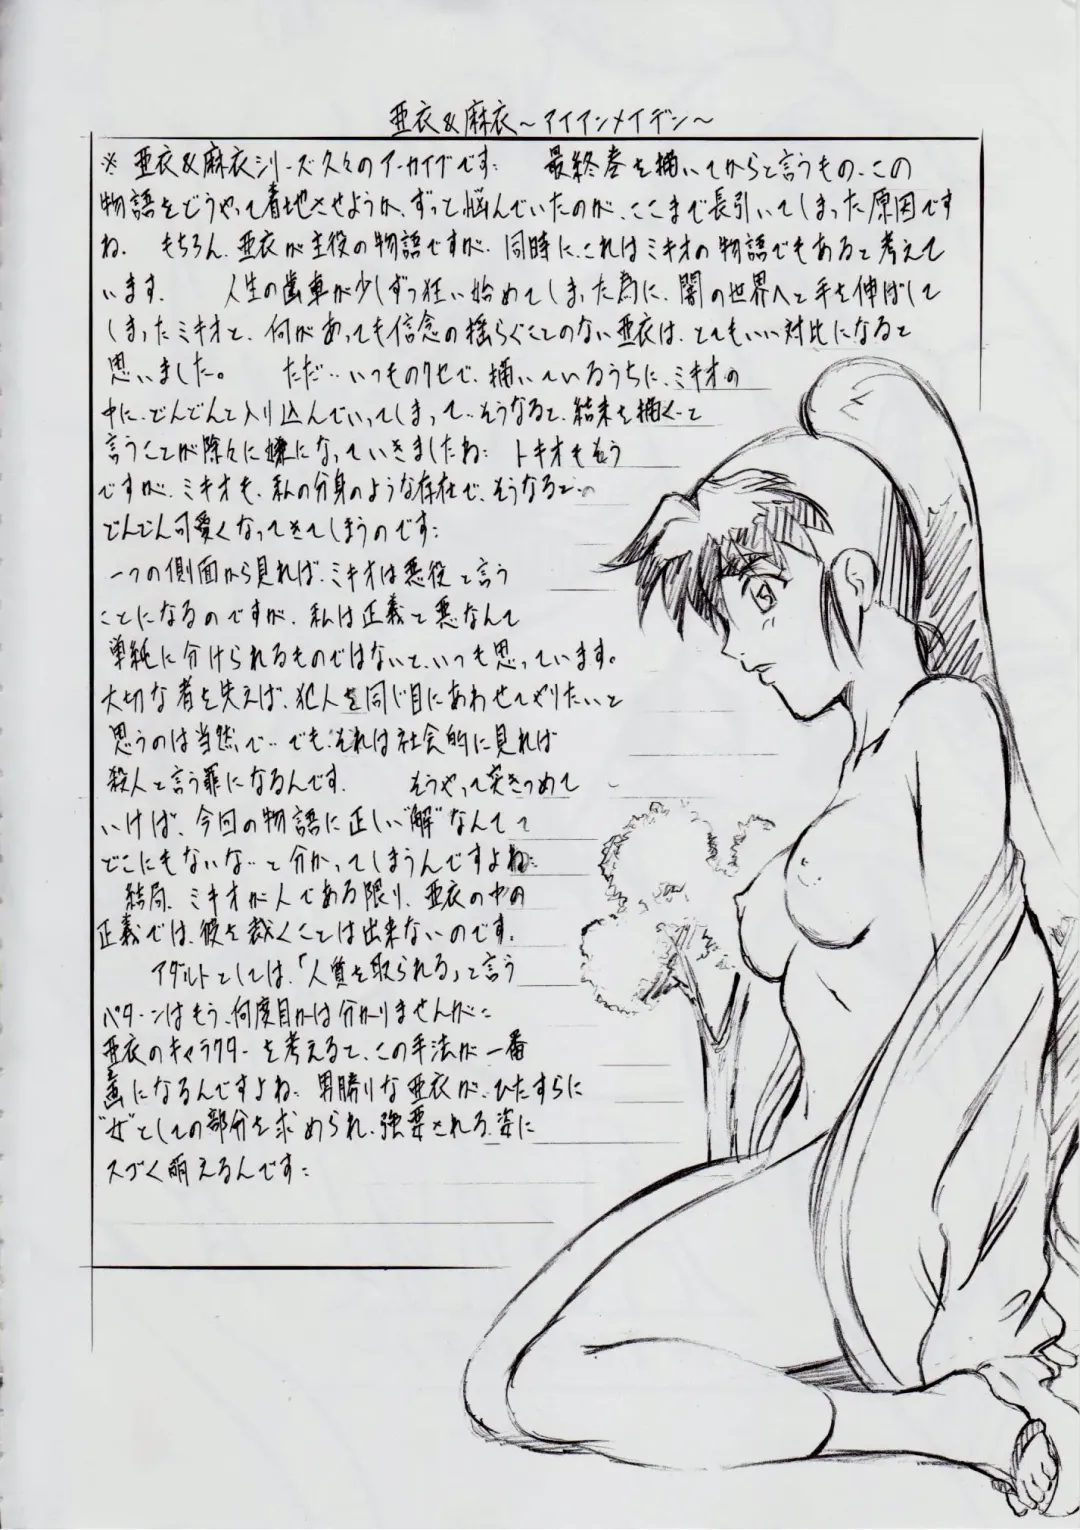 亜衣&麻衣～アイアンメイデン～
※ 亜衣&麻衣シリーズ久々のアーカイブです: 最終巻を描いてからと言うもの、この
物語をどうやって着地させようか、ずっと悩んでいたのが、ここまで長引いてしまった原因です
ね. もちろん、亜衣が主役の物語ですが、同時に、これはミキオの物語でもあると考えて
います. 人生の歯車が少しずつ狂い始めてしまった為に、闇の世界へと手を伸ばして
しまったミキオと、何があっても信念の揺らぐことのない亜衣は、とてもいい対比になると
思いました。 ただ‥いつものクセで、描いているうちに、ミキオの
中に、どんどんと入り込んでいってしまって‥そうなると、結末を描く‥と
言うことが除々に嫌になっていきましたね: トキオもそう
ですが、ミキオも、私の分身のような存在で、そうなると‥
どんどん可愛くなってきてしまうのです:
一つの側面から見れば、ミキオは悪役と言う
ことになるのですが、私は正義と悪なんて
単純に分けられるものではないと、いつも思っています。
大切な者を失えば、犯人を同じ目にあわせてやりたいと
思うのは当然で‥でも、それは社会的に見れば
殺人と言う罪になるんです. そうやって突きつめて
いけば、今回の物語に正しい"解"なんて
どこにもないな‥と分かってしまうんですよね:
結局、ミキオが人である限り、亜衣の中の
正義では、彼を裁くことは出来ないのです.
アダルトとしては、「人質を取られる」と言う
パターンはもう、何度目かは分かりませんが:
亜衣のキャラクターを考えると、この手法が一番
画になるんですよね. 男勝りな亜衣が、ひたすらに
"女"としての部分を求められ、強要される姿に
スゴく萌えるんです: